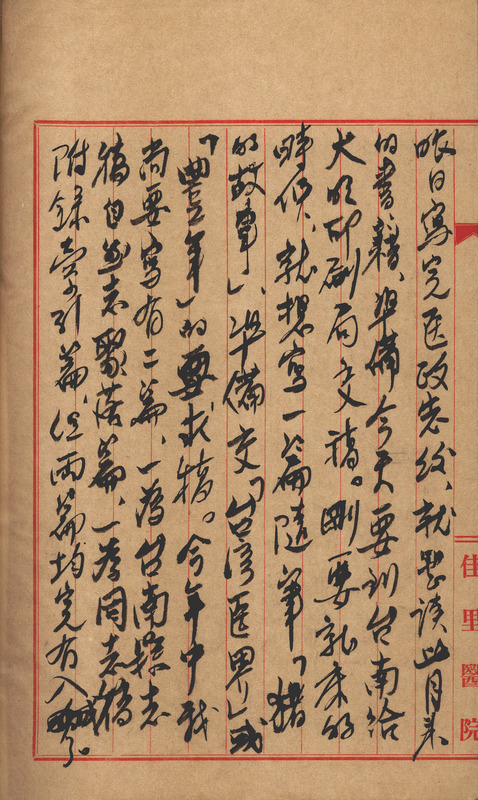 昨日寫完医政志後、就整讀此月來
的書籍、準備今天要到台南給
大明印刷局交稿。剛要就床的
時候、就想寫一篇隨筆「猪
的故事」、準備交「台湾医界」或
「豊年」的要求稿。今年中我
尚要寫有二篇、一為台南縣志
稿自然志聚落篇、一為同志稿
附錄索引篇、但兩篇均完有入了。
佳里醫院